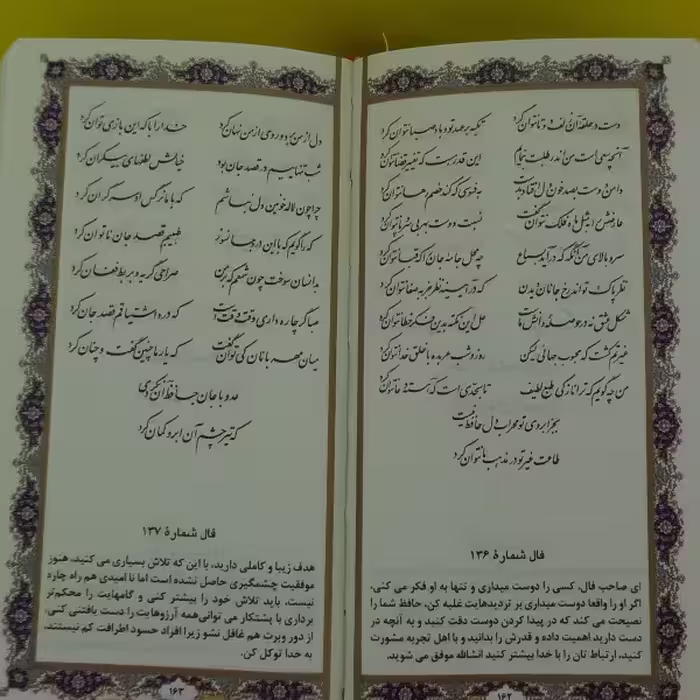 دست در حلقه آن زلف دوتا نتوان کرد تکیه بر عهد تو و باد صبا نتوان کرد
آنچه سعی است من اندر طلبت بنمایم این قدر هست که تغییر قضا نتوان کرد
دامن دوست بصد خون دل افتاد بدست به فسوسی که کند خصم رها نتوان کرد
عارضش را بمثل ماه فلک نتوان گفت نسبت دوست بهر بی سر و پا نتوان کرد
سرو بالای من آنگه که درآید بسماع چه محل جامه جان را که قبا نتوان کرد
نظر پاک تواند رخ جانان دیدن که در آیینه نظر جز به صفا نتوان کرد
مشکل عشق نه در حوصله دانش ماست حل این نکته بدین فکر خطا نتوان کرد
غیرتم کشت که محبوب جهانی لیکن روز و شب عربده با خلق خدا نتوان کرد
من چه گویم که ترا نازکی طبع لطیف تا بحدی است که آهسته دعا نتوان کرد
بجز ابروی تو محراب دل حافظ نیست
طاعت غیر تو در مذهب ما نتوان کرد
فال شمارهٔ ۱۳۶
ای صاحب فال، کسی را دوست میداری و تنها به او فکر می کنی.
اگر او را واقعا دوست میداری بر تردیدهایت غلبه کن، حافظ شما را
نصیحت می کند که در پیدا کردن دوست دقت کنید و به آنچه در
دست دارید اهمیت داده و قدرش را بدانید و با اهل تجربه مشورت
کنید، ارتباط تان را با خدا بیشتر کنید انشالله موفق می شوید.
۱۶۲
دل از من برد و روی از من نهان کرد خدا را با که این بازی توان کرد
شب تنهاییم در قصد جان بود خیالش لطفهای بیکران کرد
چرا چون لاله خونین دل نباشم که با ما نرگس او سر گران کرد
که را گویم که با این درد جانسوز طبیبم قصد جان ناتوان کرد
بدانسان سوخت چون شمعم که بر من صراحی گریه و بربط فغان کرد
صبا گر چاره داری وقت وقت است که درد اشتیاقم قصد جان کرد
میان مهربانان کی توان گفت که یار ما چنین گفت و چنان کرد
عدو با جان حافظ آن نکردی
که تیر چشم آن ابرو کمان کرد
فال شمارهٔ ۱۳۷
هدف زیبا و کاملی دارید، با این که تلاش بسیاری می کنید، هنوز
موفقیت چشمگیری حاصل نشده است اما نا امیدی هم راه چاره
نیست. باید تلاش خود را بیشتر کنی و گامهایت را محکم‌تر
برداری با پشتکار می توانی همه آرزوهایت را دست یافتنی کنی.
از دور وبرت هم غافل نشو زیرا افراد حسود اطرافت کم نیستند.
به خدا توکل کن.
۱۶۳